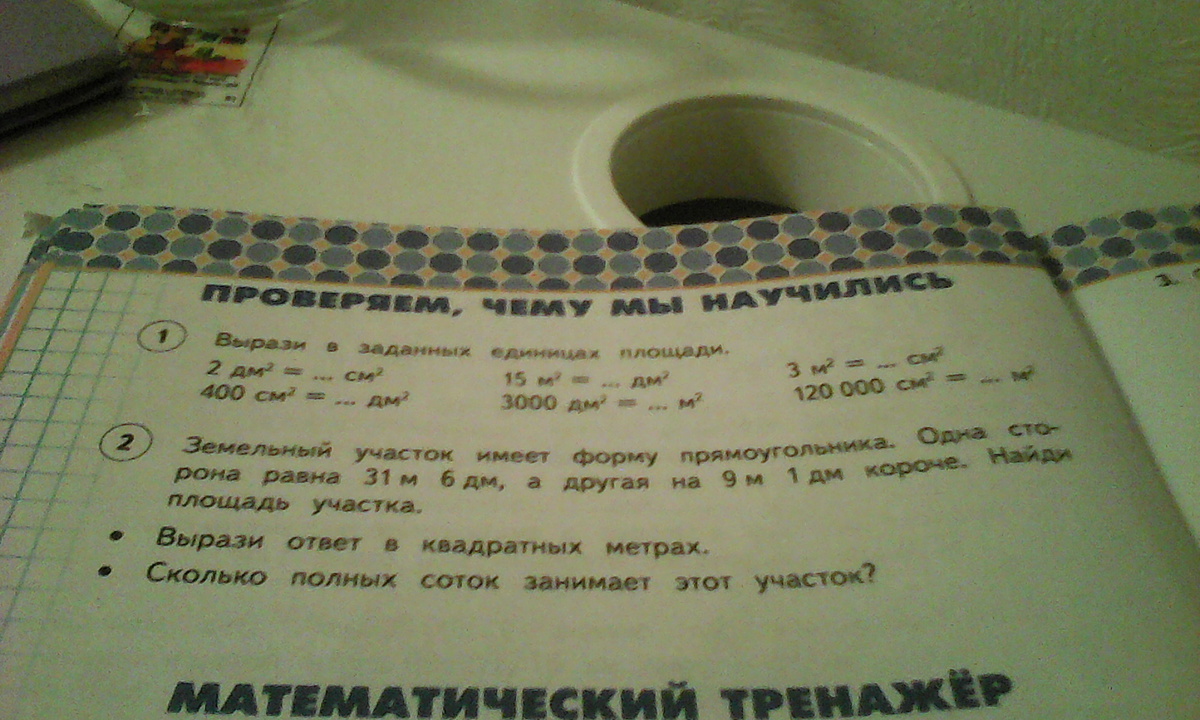 ПРОВЕРЯЕМ, ЧЕМУ МЫ НАУЧИЛИСЬ
1 Вырази в заданных единицах площади.
2 дм² = ... см² 15 м² = ... дм² 3 м² = ... см²
400 см² = ... дм² 3000 дм² = ... м² 120 000 см² = ... м²
2 Земельный участок имеет форму прямоугольника. Одна сто-
рона равна 31 м 6 дм, а другая на 9 м 1 дм короче. Найди
площадь участка.
• Вырази ответ в квадратных метрах.
• Сколько полных соток занимает этот участок?
МАТЕМАТИЧЕСКИЙ ТРЕНАЖЁР
3.